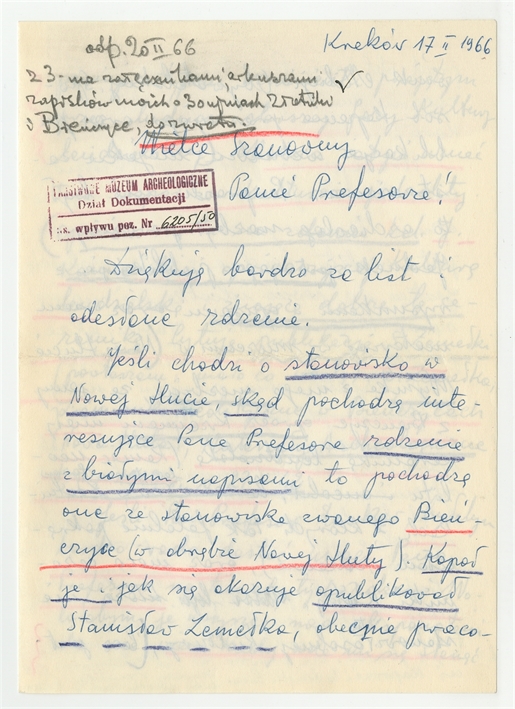 odp. 20 II 66
Kraków 17 II 1966
z 3-ma załącznikami, arkuszami
zapisków moich o 3 oupniach z ratiku
i Bieńczyce, do zwrotu.
Wielce Szanowny
Panie Profesorze!
PAŃSTWOWE MUZEUM ARCHEOLOGICZNE
Dział Dokumentacji
ks. wpływu poz. Nr 6205/50
Dziękuję bardzo za list i
odesłane rdzenie.
Jeśli chodzi o stanowisko w
Nowej Hucie, skąd pochodzą inte-
resujące Pana Profesora rdzenie
z białymi napisami to pochodzą
one ze stanowiska zwanego Bień-
czyce (w obrębie Nowej Huty). Kopał
je i jak się okazuje opublikował
Stanisław Zemełka, obecnie praco-